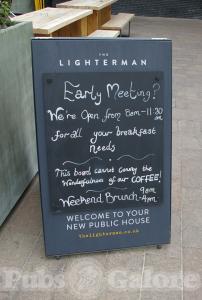 THE
LIGHTERMAN
Early Meeting?
We're Open from 8am-11:30 am
for all your breakfast
needs
This board cannot convey the
Wonderfulness of our COFFEE!
9am
Weekend Brunch-4pm
WELCOME TO YOUR
NEW PUBLIC HOUSE
thelighterman.co.uk
Pubs Galore